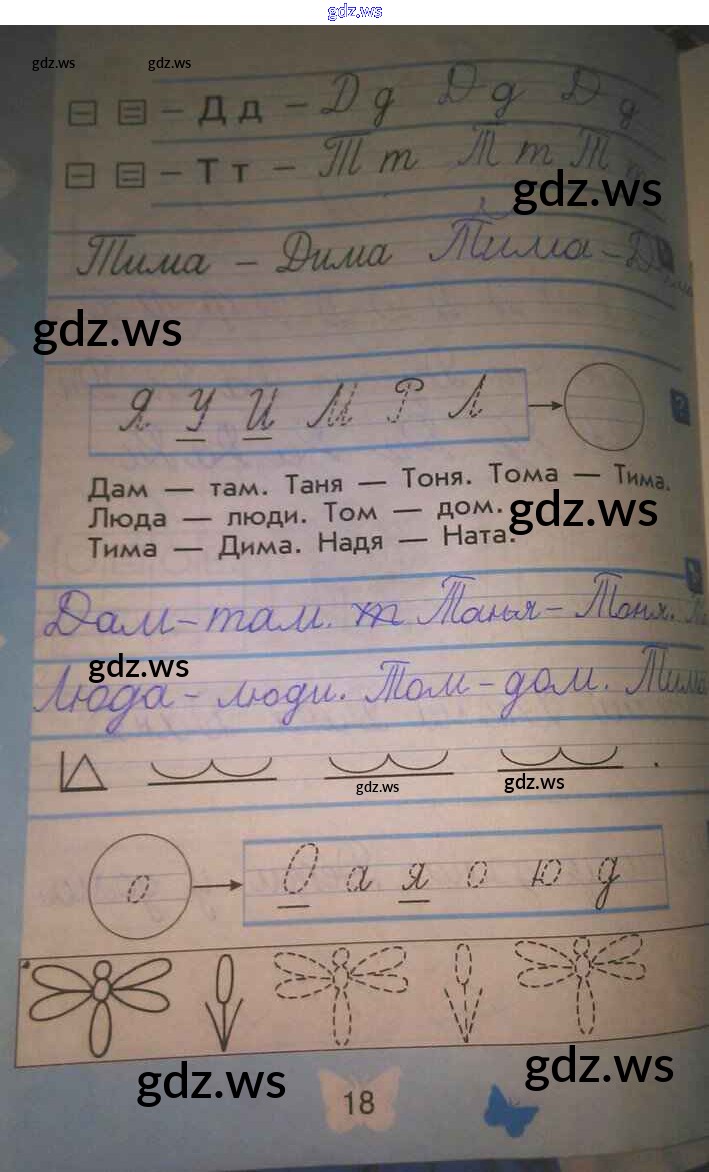 gdz.ws
gdz.ws gdz.ws
– Д д – Д д Д д Д д
– Т т – Т т Т т Т т
gdz.ws
Тима – Дима Тима – Д
gdz.ws
Я У И М Р Л
Дам — там. Таня — Тоня. Тома — Тима.
Люда — люди. Том — дом.
gdz.ws
Тима — Дима. Надя — Ната.
Дам – там. Танья – Тоня.
gdz.ws
Люда – люди. Том – дом. Тима
gdz.ws gdz.ws
о О а я о ю д
gdz.ws gdz.ws
18